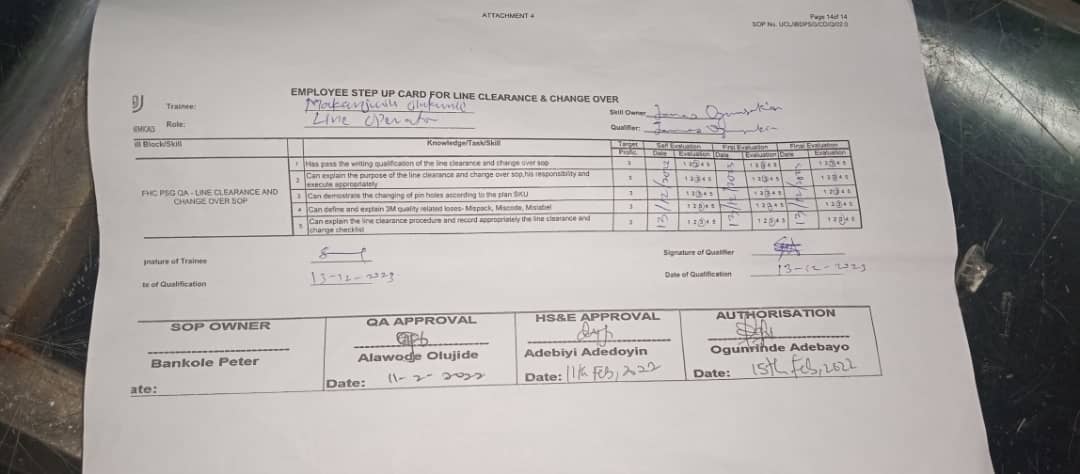 ATTACHMENT 4
Page 14of 14
SOP No. UCL/IBDPSG/CO/Q/02.0
EMPLOYEE STEP UP CARD FOR LINE CLEARANCE & CHANGE OVER
Trainee:
Skill Owner
Role: Line Operator
Qualifier:
ill Block/Skill Knowledge/Task/Skill Target Profic. Self Evaluation First Evaluation Final Evaluation
Date Evaluation Date Evaluation Date Evaluation
FHC PSG QA - LINE CLEARANCE AND CHANGE OVER SOP
1 Has pass the writing qualification of the line clearance and change over sop 3 1 2 3 4 5 1 2 3 4 5 1 2 3 4 5
2 Can explain the purpose of the line clearance and change over sop,his responsibility and execute appropriately 3 1 2 3 4 5 1 2 3 4 5 1 2 3 4 5
3 Can demostrate the changing of pin holes according to the plan SKU 3 1 2 3 4 5 1 2 3 4 5 1 2 3 4 5
4 Can define and explain 3M quality related loses- Mispack, Miscode, Mislabel 3 1 2 3 4 5 1 2 3 4 5 1 2 3 4 5
5 Can explain the line clearance procedure and record appropriately the line clearance and change checklist 3 1 2 3 4 5 1 2 3 4 5 1 2 3 4 5
13/12/2023 13/12/2023
gnature of Trainee
Signature of Qualifier
te of Qualification 13-12-2023
Date of Qualification 13-12-2023
SOP OWNER QA APPROVAL HS&E APPROVAL AUTHORISATION
Bankole Peter Alawode Olujide Adebiyi Adedoyin Ogunrinde Adebayo
ate: Date: 11-2-2022 Date: 11th Feb, 2022 Date: 15th Feb, 2022